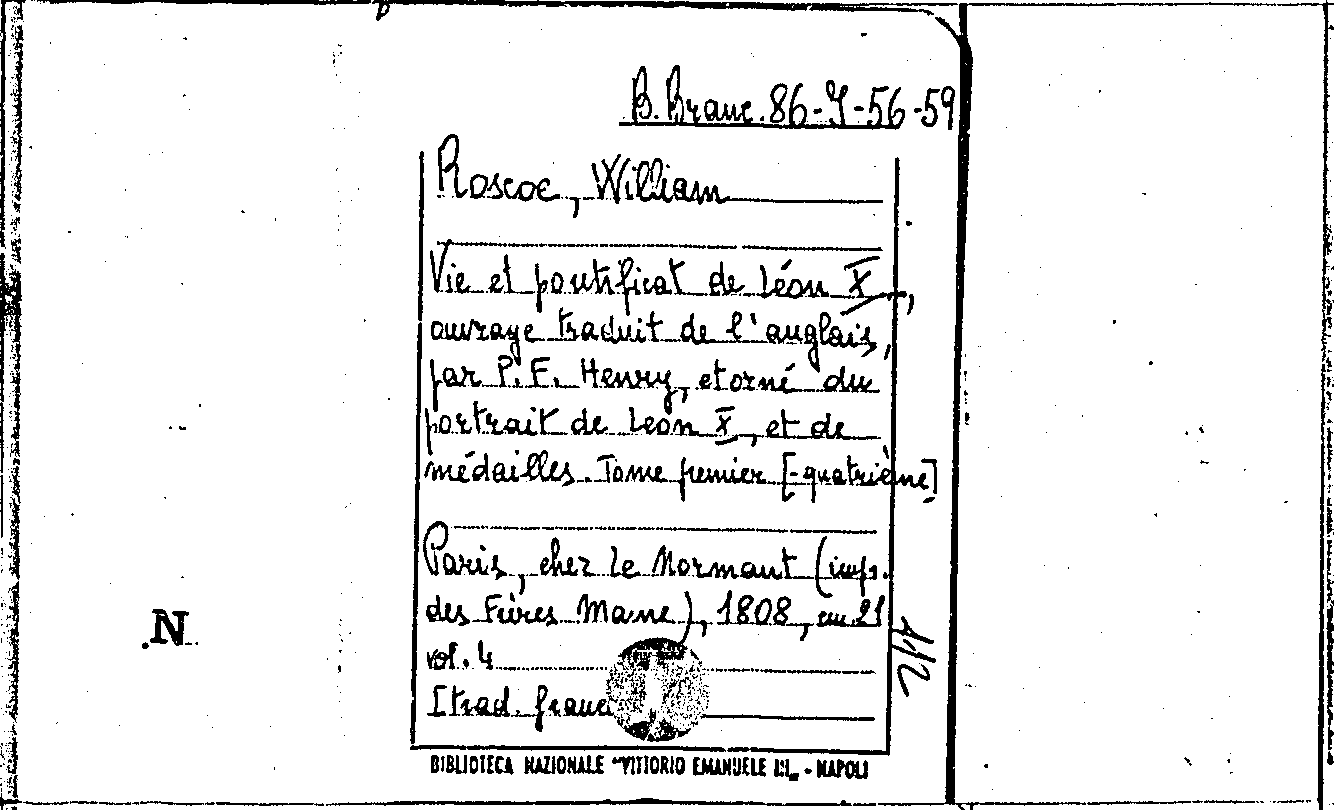 B. Branc. 86-I-56-59
Roscoe, William
Vie et pontificat de Léon X,
ouvrage traduit de l'anglais,
par P. F. Henry, et orné du
portrait de Leon X, et de
médailles. Tome premier [-quatrième]
Paris, chez Le Normant (imp.
des Frères Mame), 1808, cm. 21
vol. 4
[trad. franc
112
N
BIBLIOTECA NAZIONALE "VITTORIO EMANUELE III" - NAPOLI